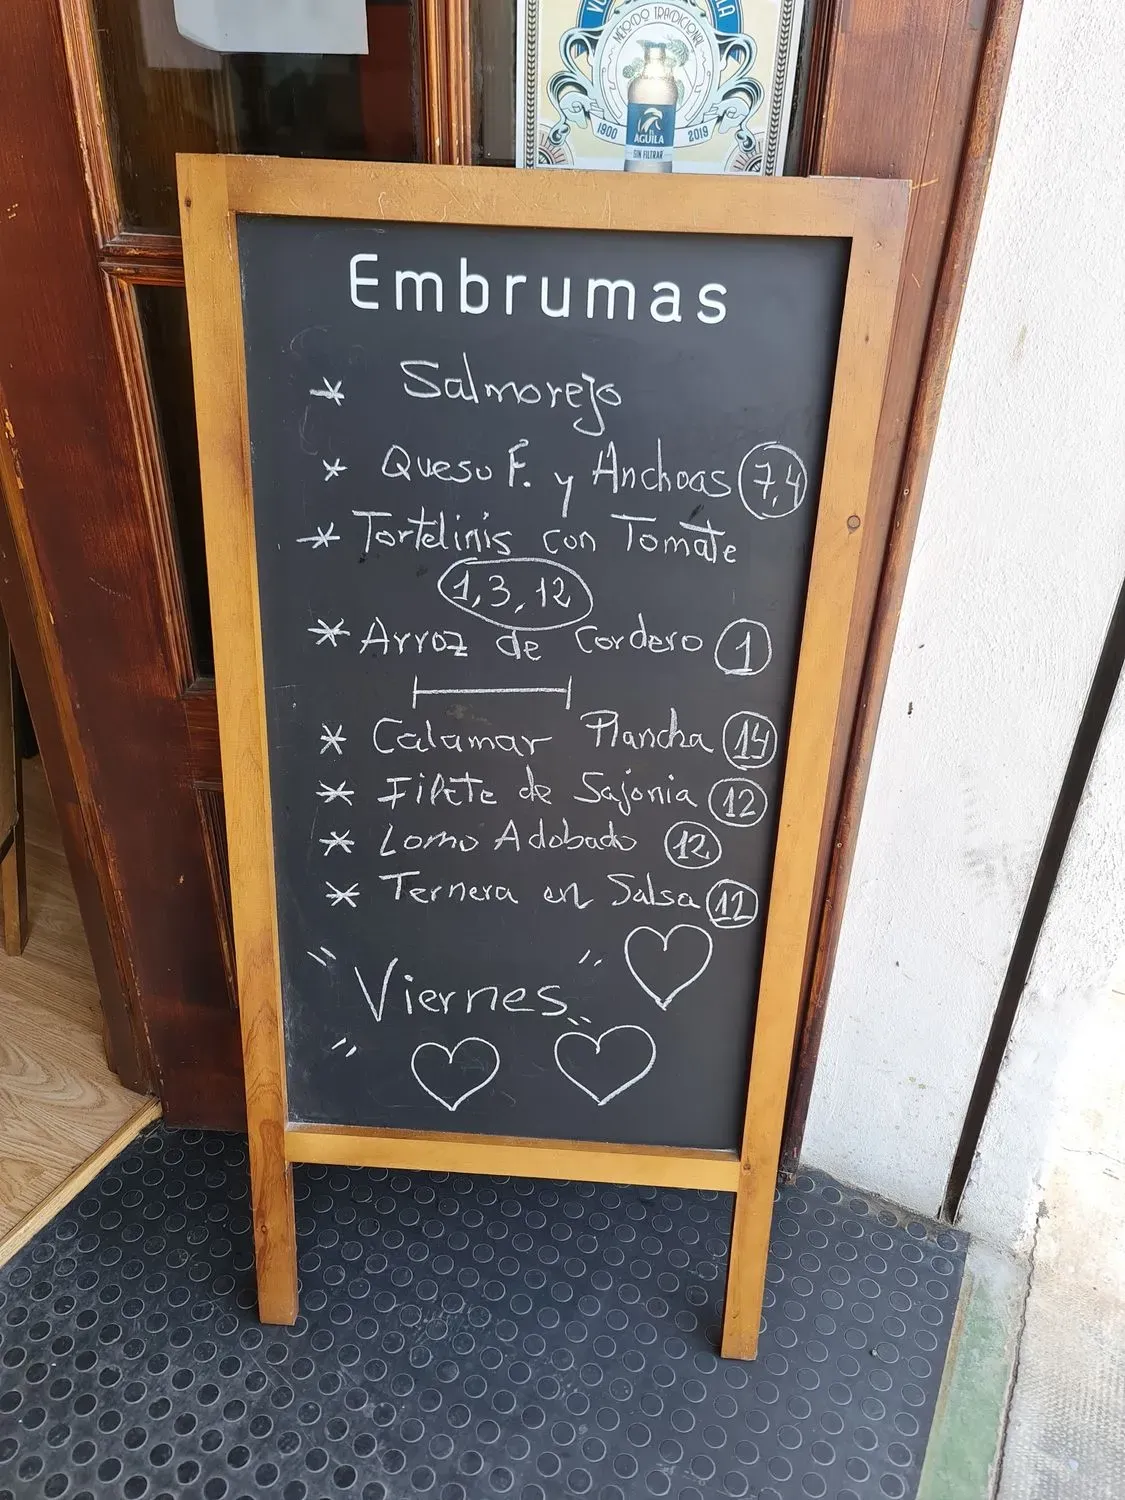 MÉTODO TRADICIONAL
1900 2019
ÁGUILA
SIN FILTRAR
Embrumas
* Salmorejo
* Queso F. y Anchoas 7,4
* Tortelinis con Tomate
1,3,12
* Arroz de Cordero 1
* Calamar Plancha 14
* Filete de Sajonia 12
* Lomo Adobado 12
* Ternera en Salsa 12
" Viernes "